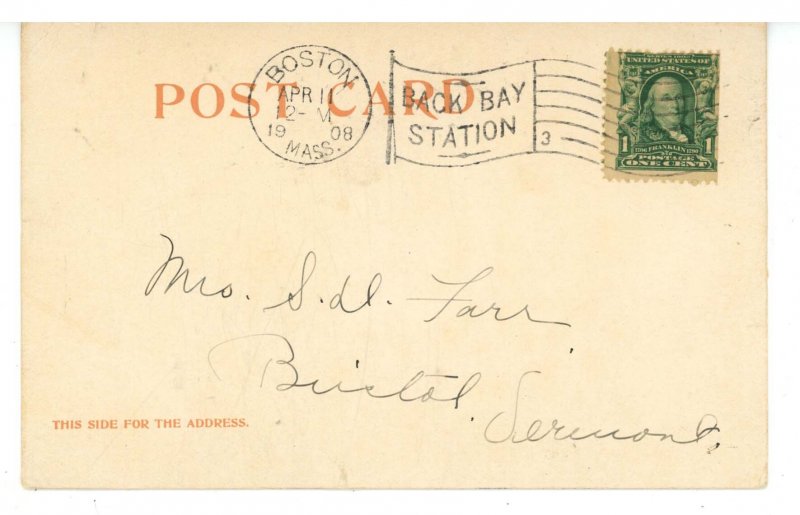 POST CARD
BOSTON
APR 11
12-M
19 08
MASS.
BACK BAY
STATION
3
UNITED STATES OF
AMERICA
1 FRANKLIN 1
POSTAGE
ONE CENT
Mrs. S. D. Farr
Bristol
Vermont.
THIS SIDE FOR THE ADDRESS.